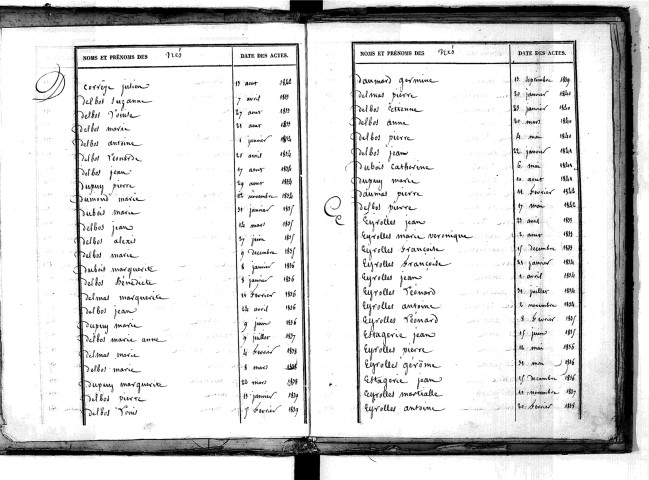 NOMS ET PRÉNOMS DES Nés DATE DES ACTES.
D
Corrèze julien 13 aout 1842
delbos suzanne 7 avril 1833
delbos Louise 27 aout 1833
delbos marie 28 aout 1833
delbos antoine 1 janvier 1834
delbos Léonarde 25 avril 1834
delbos jean 17 aout 1834
dupuy pierre 29 aout 1834
dumond marie novembre 1834
dubois marie 31 janvier 1835
delbos jean mars 1835
delbos alexis 27 juin 1835
delbos marie 9 decembre 1835
dubois marguerite 8 janvier 1836
delbos Bénédicte 8 janvier 1836
delmas marguerite 14 fevrier 1836
delbos jean 24 avril 1836
dupuy marie 9 juin 1836
delbos marie anne 9 juillet 1837
delmas marie 4 fevrier 1838
delbos marie 8 mars 1838
dupuy marguerite 20 mars 1838
delbos pierre 13 janvier 1839
delbos Louis 5 fevrier 1839
NOMS ET PRÉNOMS DES Nés DATE DES ACTES.
daumard germine 13 septembre 1839
delmas pierre 20 janvier 1840
delbos Etienne 23 janvier 1840
delbos anne 20 mars 1840
delbos pierre 4 mai 1840
delbos jean 22 janvier 1841
dubois catherine 6 mai 1841
dupuy marie 10 aout 1841
daumas pierre fevrier 1842
delbos pierre 17 mai 1842
E
Eyrolles jean 22 avril 1833
Eyrolles marie veronique 2 aout 1833
Eyrolles francoise 15 decembre 1833
Eyrolles francoise 21 janvier 1834
Eyrolles jean 2 avril 1834
Eyrolles Léonard 31 juillet 1834
Eyrolles antoine 2 novembre 1834
Eyrolles Léonard 8 fevrier 1835
Estagerie jean 15 juin 1835
Eyrolles pierre 12 mai 1836
Eyrolles gérôme 31 mai 1836
Estagerie jean 15 decembre 1836
Eyrolles martialle 12 novembre 1837
Eyrolles antoine 20 fevrier 1838